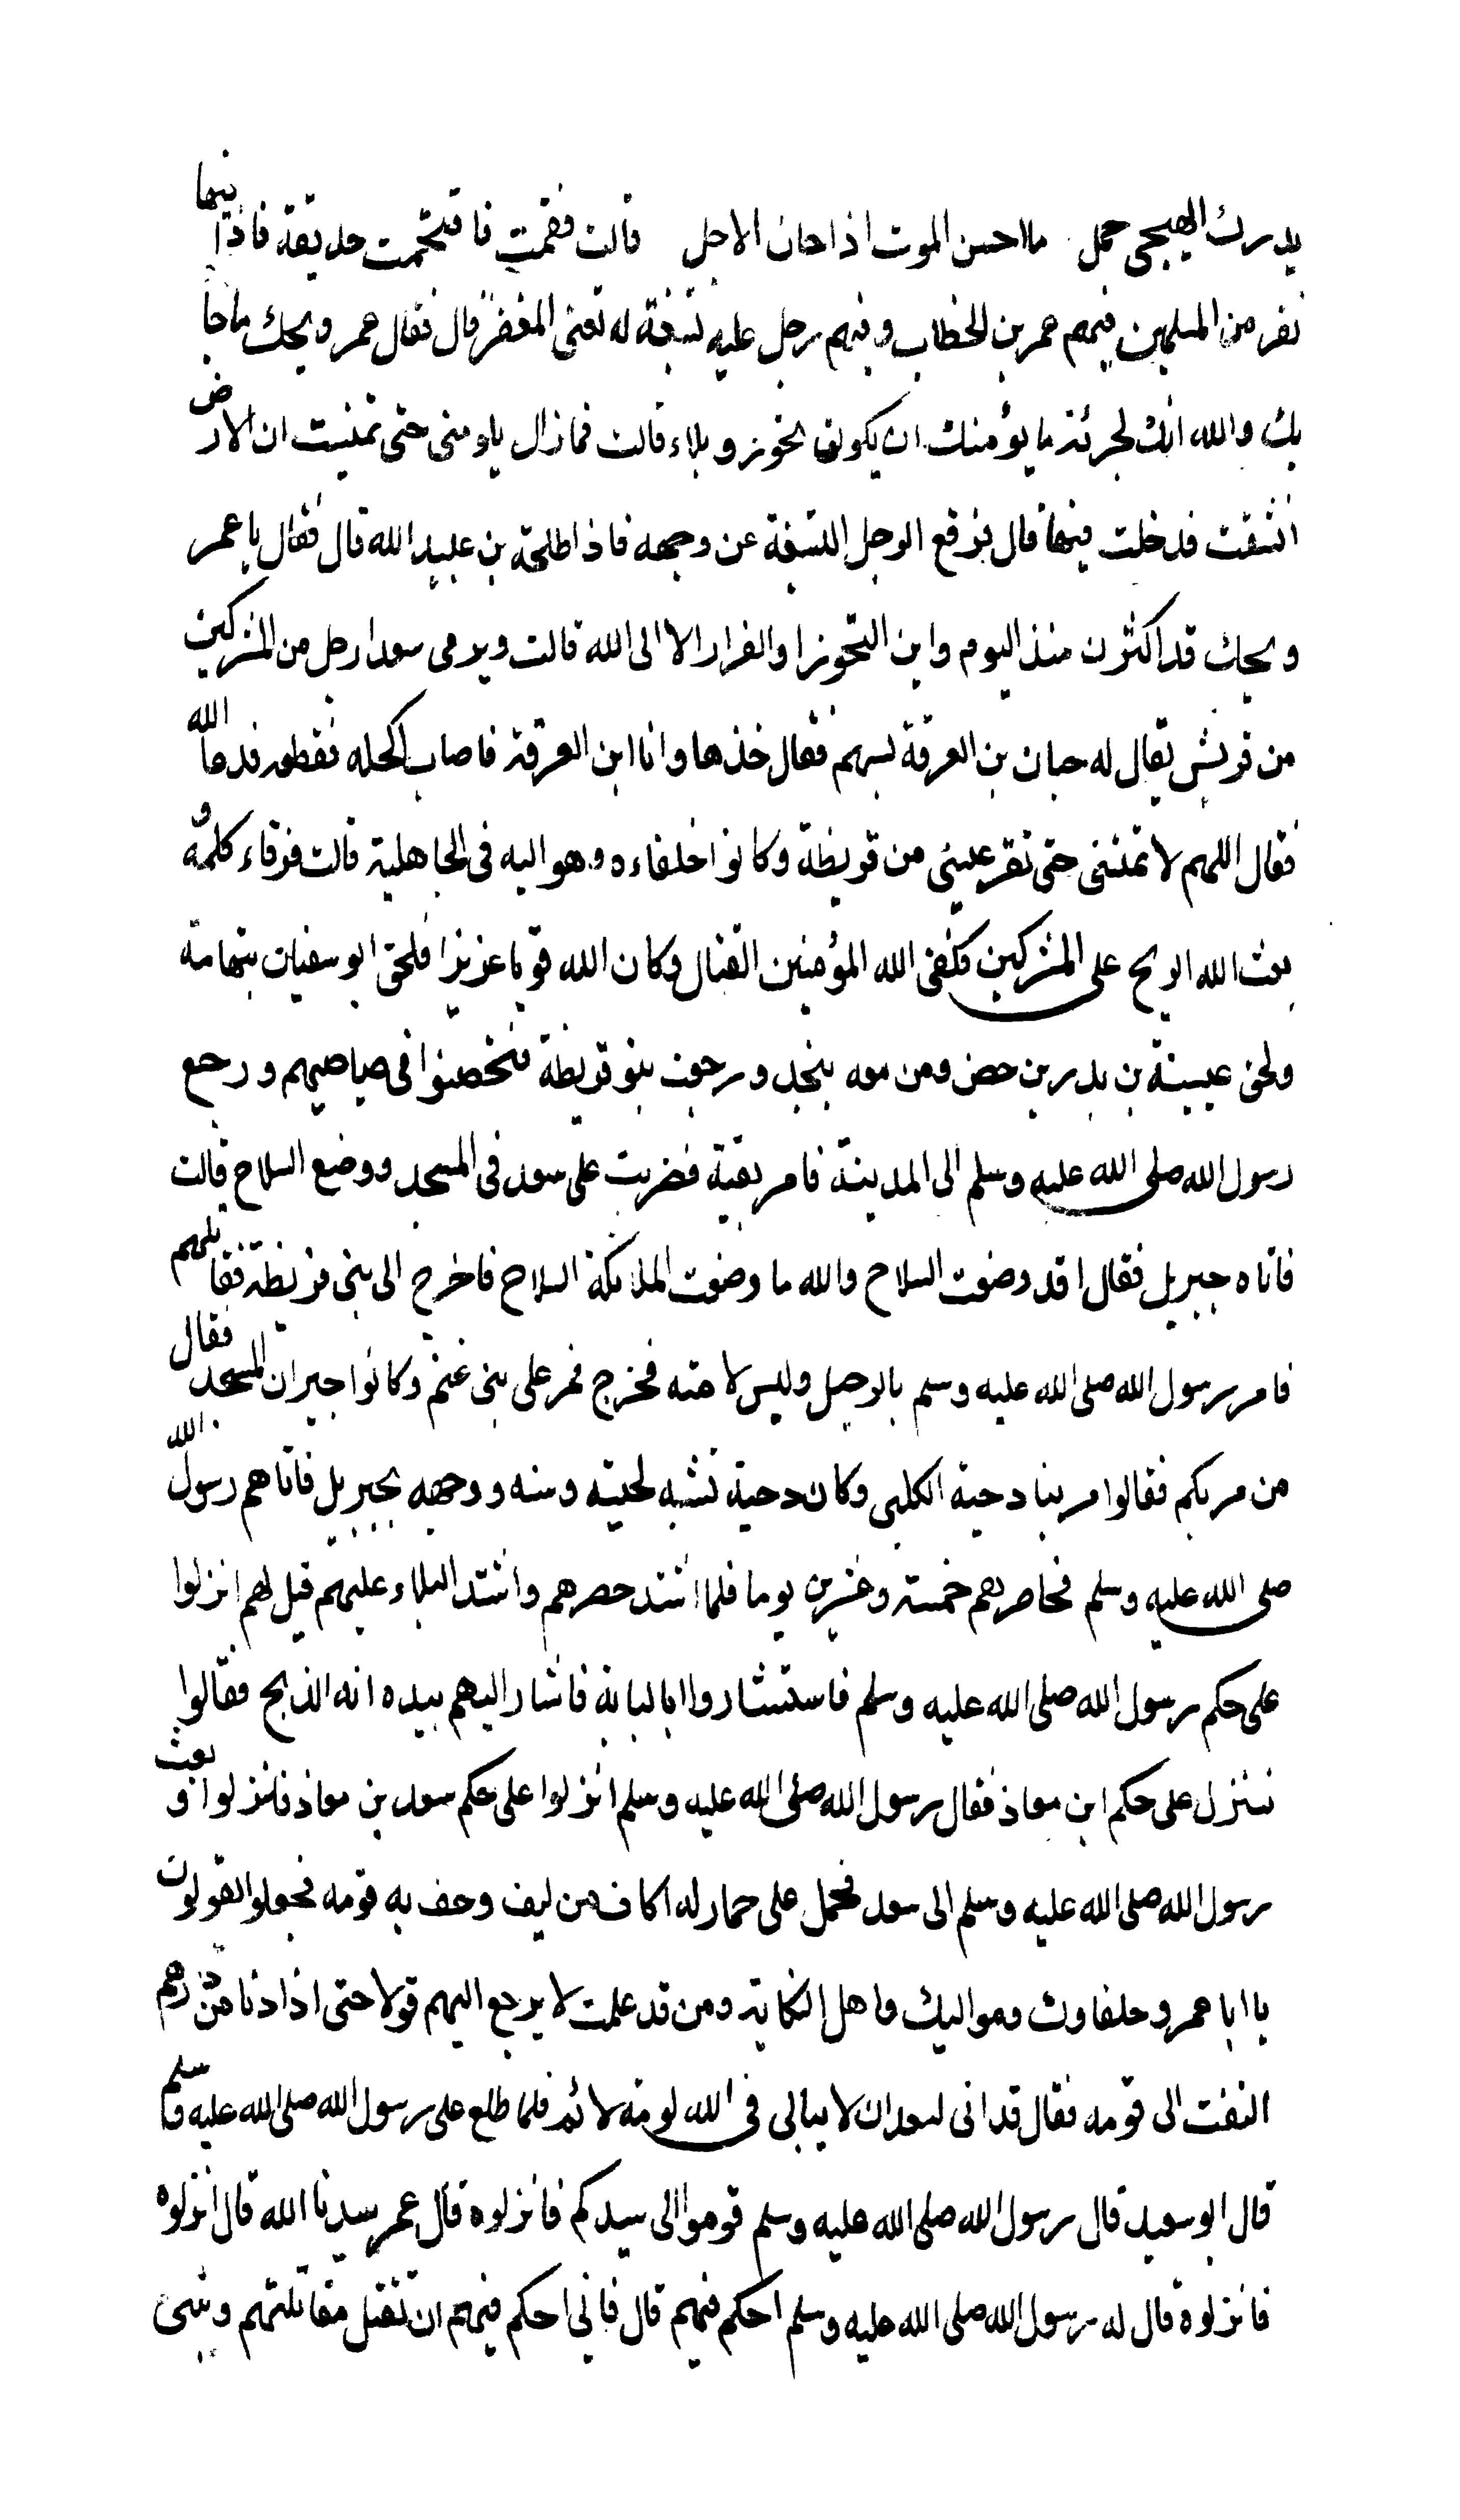 يدرك الهيجى حمل ما احسن الموت اذا حان الاجل قالت فقمت فاقتحمت حديقة فاذا فيها
نفر من المسلمين فيهم عمر بن الخطاب وفيهم رجل عليه تسبغة له تعنى المغفر قال فقال عمر ويحك ما جا
بك والله انك لجريئة ما يؤمنك ان يكون تحوز وبلاء قالت فما زال يلومنى حتى تمنيت ان الارض
انشقت فدخلت فيها قال فرفع الرجل التسبغة عن وجهه فاذا طلحة بن عبيد الله قال فقال يا عمر
ويحك قد اكثرت منذ اليوم واين التحوز او الفرار الا الى الله قالت ويرمى سعدا رجل من المشركين
من قريش يقال له حبان بن العرقة بسهم فقال خذها وانا ابن العرقة فاصاب اكحله فقطعه فدعا الله
فقال اللهم لا تمتنى حتى تقر عينى من قريظة وكانوا حلفاءه ومواليه فى الجاهلية قالت فرقاء كلمه و
بعث الله الريح على المشركين فكفى الله المؤمنين القتال وكان الله قويا عزيزا فلحق ابو سفيان بتهامة
ولحق عيينة بن بدر بن حصن ومن معه بنجد ورجعت بنو قريظة فتحصنوا فى صياصيهم ورجع
رسول الله صلى الله عليه وسلم الى المدينة فامر بقبة فضربت على سعد فى المسجد ووضع السلاح قالت
فاتاه جبريل فقال اقد وضعت السلاح والله ما وضعت الملائكة السلاح فاخرج الى بنى قريظة فقاتلهم
فامر رسول الله صلى الله عليه وسلم بالرحيل ولبس لامته فخرج فمر على بنى غنم وكانوا جيران المسجد فقال
من مر بكم فقالوا مر بنا دحية الكلبى وكان دحية تشبه لحيته وسنه ووجهه بجبريل فاتاهم رسول الله
صلى الله عليه وسلم فحاصرهم خمسة وعشرين يوما فلما اشتد حصرهم واشتد البلاء عليهم قيل لهم انزلوا
على حكم رسول الله صلى الله عليه وسلم فاستشاروا ابا لبابة فاشار اليهم بيده انه الذبح فقالوا
ننزل على حكم ابن معاذ فقال رسول الله صلى الله عليه وسلم انزلوا على حكم سعد بن معاذ فانزلوا وبعث
رسول الله صلى الله عليه وسلم الى سعد فحمل على حمار له اكاف من ليف وحف به قومه فجعلوا يقولون
يا ابا عمرو حلفاؤك ومواليك واهل النكاية ومن قد علمت لا يرجع اليهم قولا حتى اذا دنا من دورهم
التفت الى قومه فقال قد انى لسعد ان لا يبالى فى الله لومة لائم فلما طلع على رسول الله صلى الله عليه وسلم
قال ابو سعيد قال رسول الله صلى الله عليه وسلم قوموا الى سيدكم فانزلوه قال عمر سيدنا الله قال انزلوه
فانزلوه قال له رسول الله صلى الله عليه وسلم احكم فيهم قال فانى احكم فيهم ان تقتل مقاتلتهم وتسبى